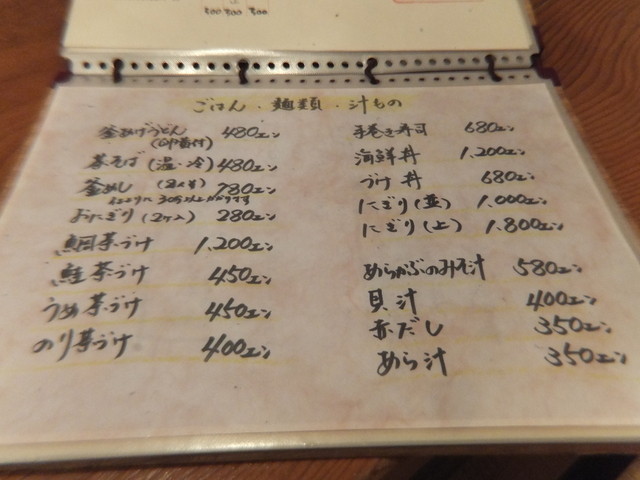 500 700 500
ごはん・麺類・汁もの
釜あげうどん 480エン
(卵黄付)
茶そば(温・冷) 480エン
釜めし (2人前) 780エン
おにぎり(2ケ入) 280エン
鯛茶づけ 1,200エン
鮭茶づけ 450エン
うめ茶づけ 450エン
のり茶づけ 400エン
手巻き寿司 680エン
海鮮丼 1,200エン
づけ丼 680エン
にぎり(並) 1,000エン
にぎり(上) 1,800エン
めらかぶのみそ汁 580エン
貝汁 400エン
赤だし 350エン
めら汁 350エン